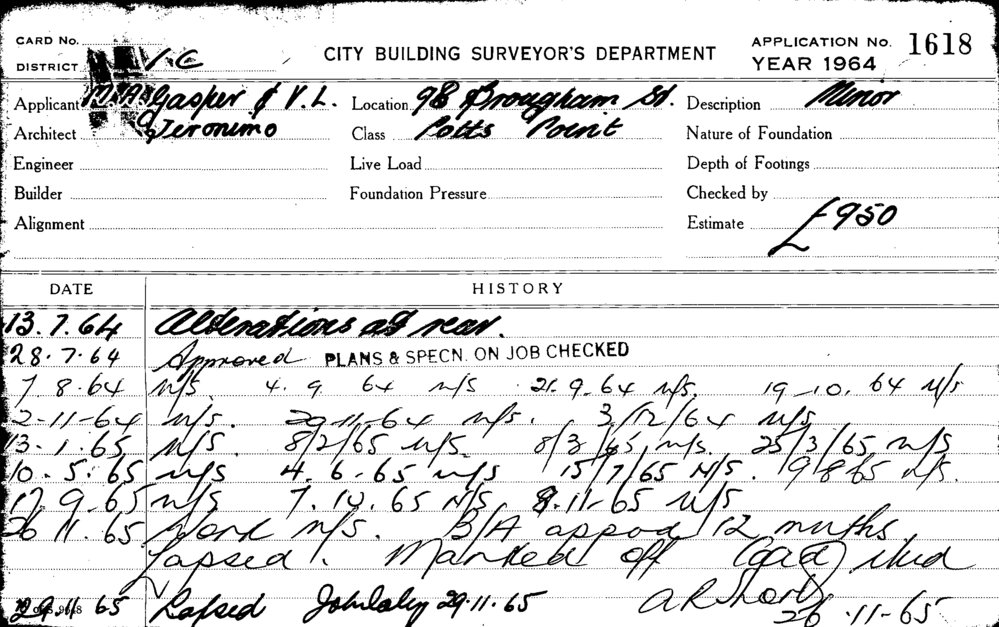 CARD No.
DISTRICT V.C
CITY BUILDING SURVEYOR'S DEPARTMENT
APPLICATION No. 1618
YEAR 1964
Applicant M.A. Gasper & V.L. Location 98 Brougham St. Description Minor
Architect Jeronimo Class Potts Point Nature of Foundation
Engineer Live Load Depth of Footings
Builder Foundation Pressure Checked by
Alignment Estimate £950
DATE HISTORY
13.7.64 Alterations at rear.
28.7.64 Approved PLANS & SPECN. ON JOB CHECKED
7 8.64 N/S. 4. 9 64 N/S 21.9.64 N/S. 19-10.64 N/S
2-11-64 N/S. 20-11-64 N/S. 3/12/64 N/S
13.1.65 N/S. 8/2/65 N/S. 8/3/65 N/S. 25/3/65 N/S
10.5.65 N/S 4.6.65 N/S 15/7/65 N/S. 9/8 65 N/S.
17.9.65 N/S 7.10.65 N/S 8.11-65 N/S
26 11.65 Work N/S. B/A appod 12 mnths
lapsed. Marked off
29.11 65 Lapsed 29.11.65 26.11-65